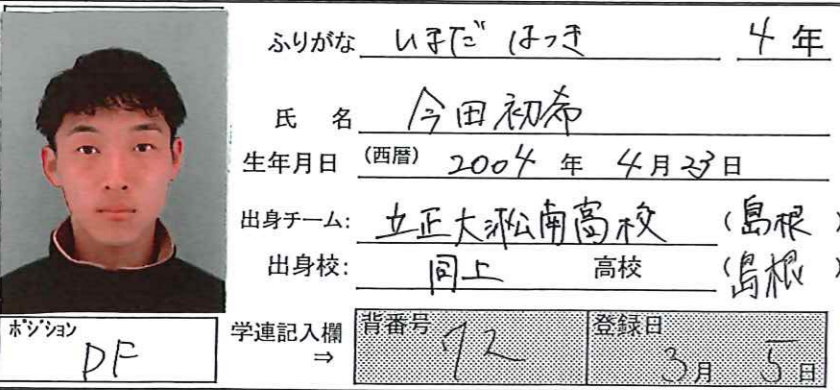 ふりがな いまだ はつき 4年
氏 名 今田初希
生年月日 (西暦) 2004 年 4月23日
出身チーム: 立正大淞南高校 (島根)
出身校: 同上 高校 (島根)
ポジション DF
学連記入欄 ⇒ 背番号 72 登録日 3月 5日